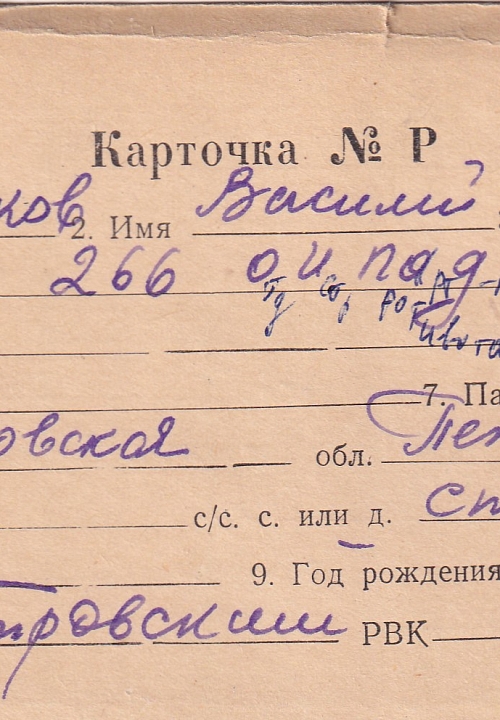 Карточка № Р
ков 2. Имя Василий
266 о и пад
7. Па
овская обл. Пен
с/с. с. или д. ст
9. Год рождения
тровским РВК